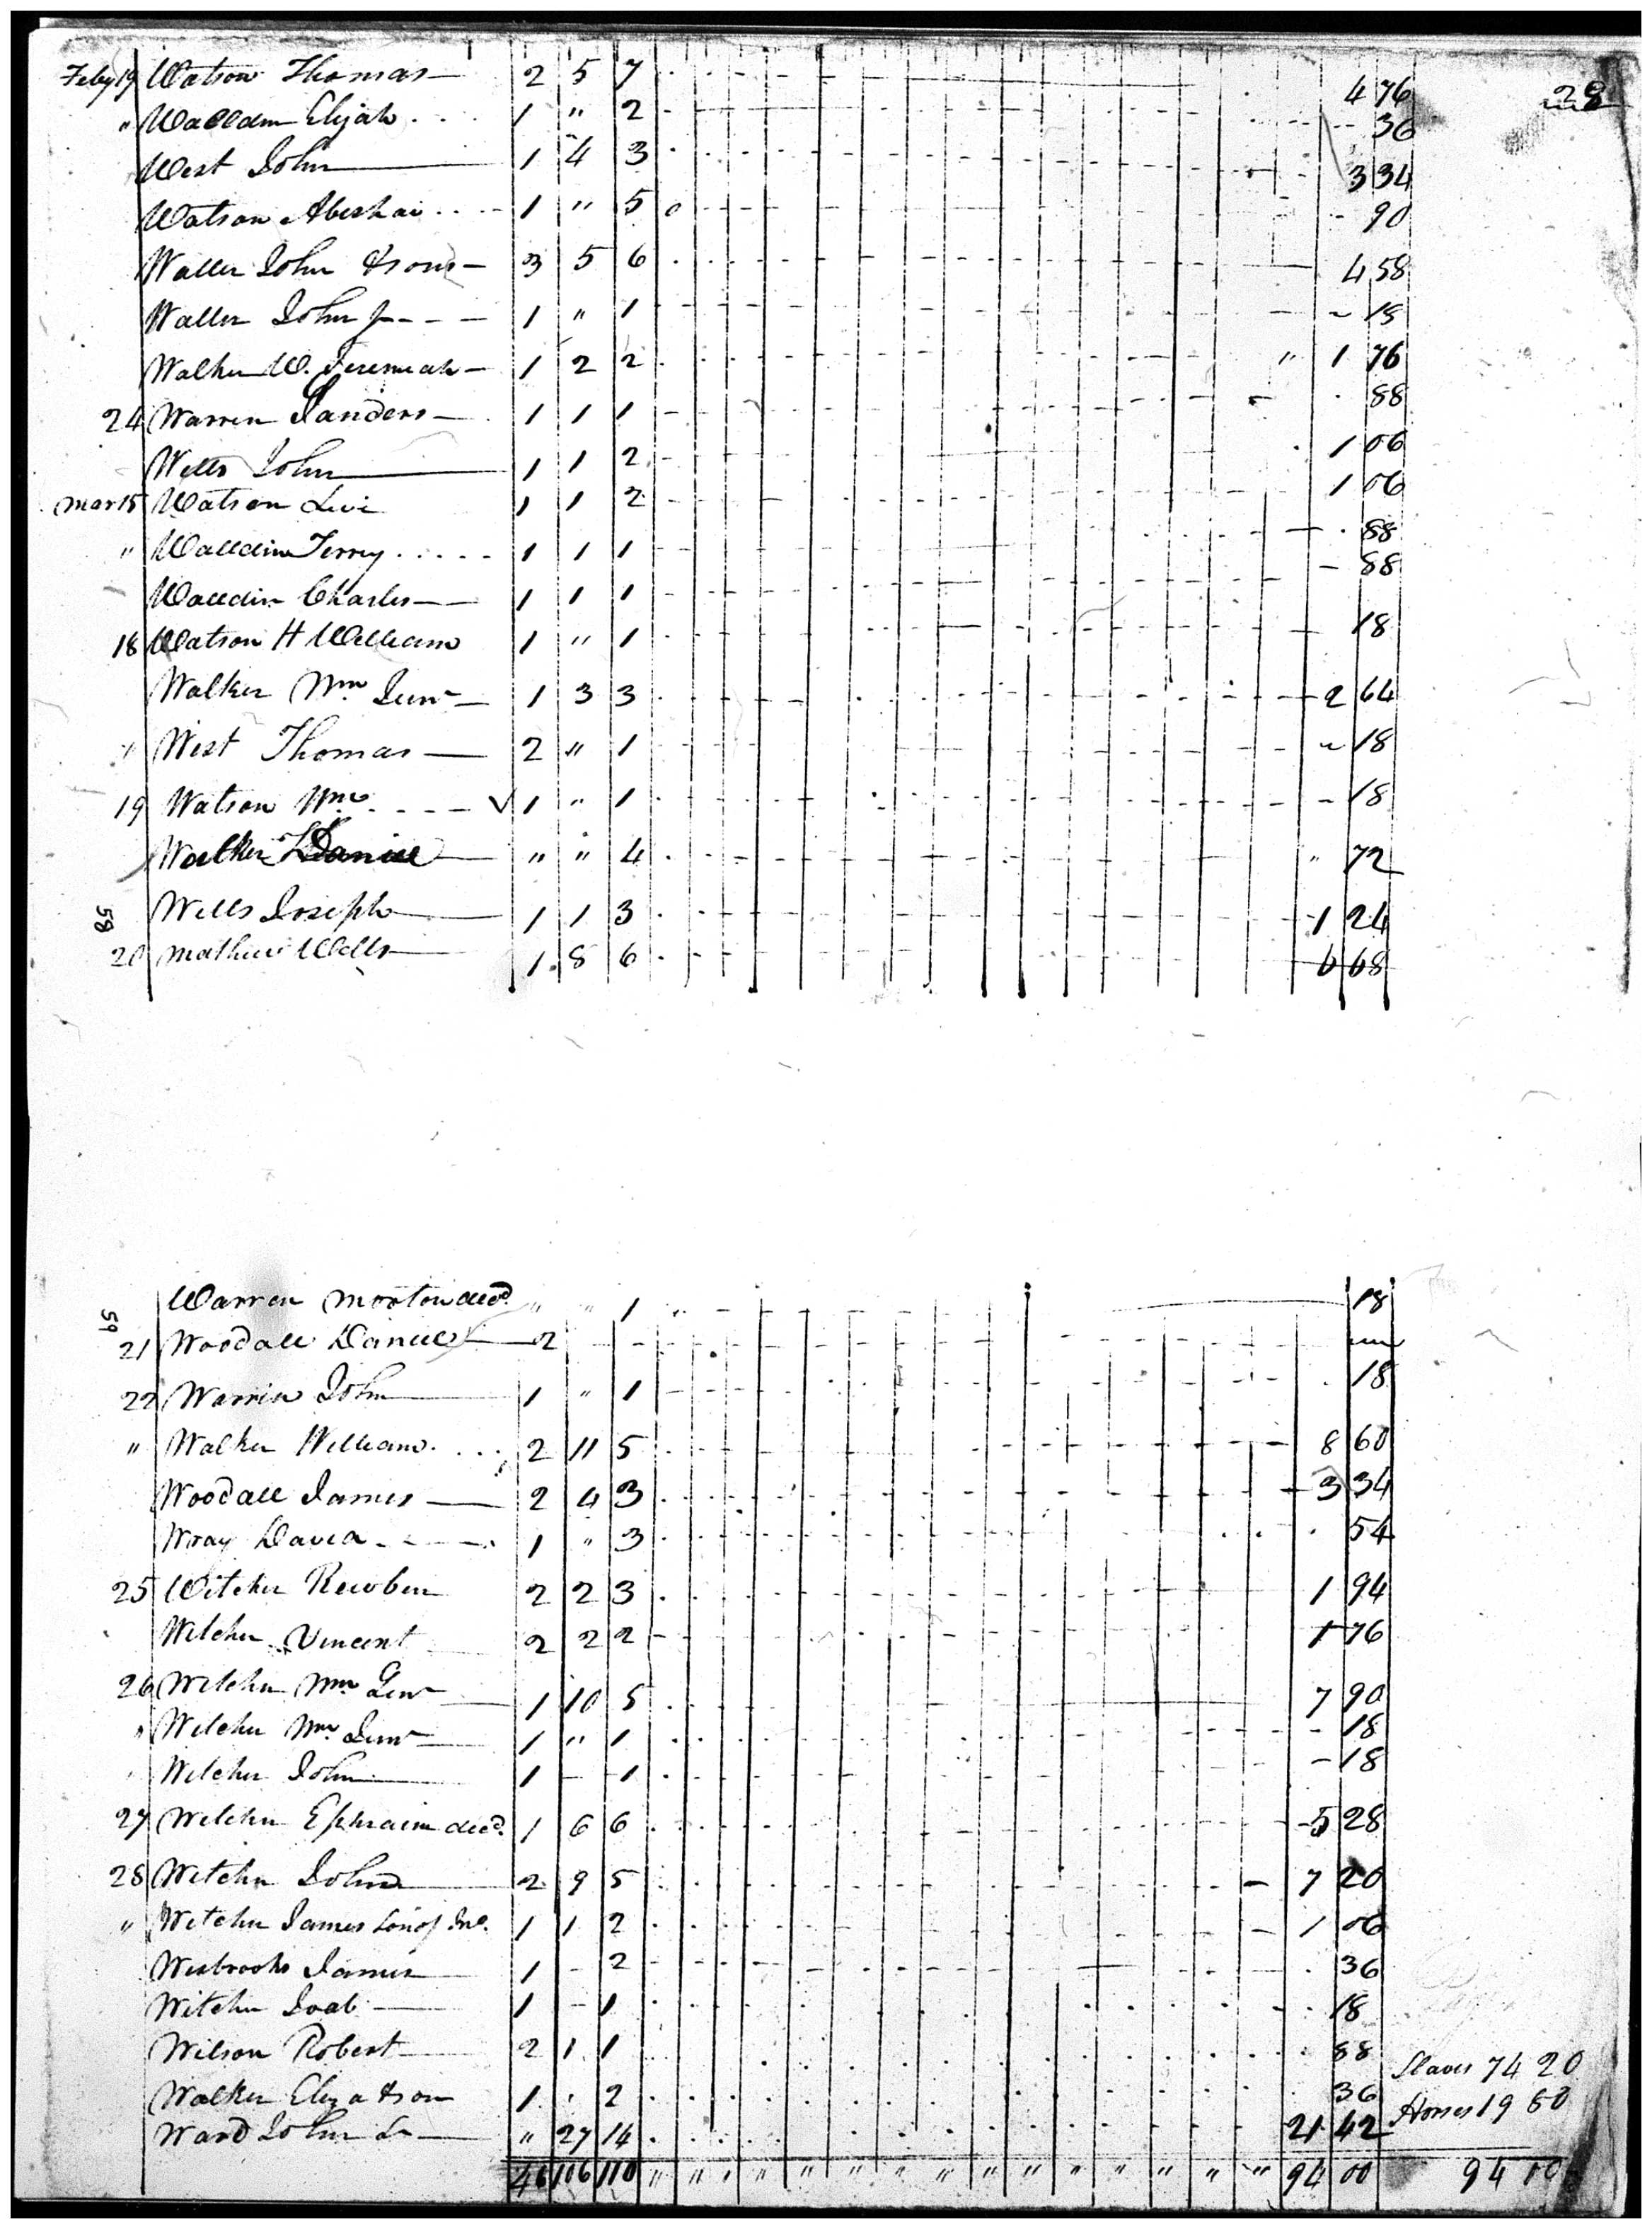 28
Feby 19 Watson Thomas 2 5 7 4 76
" Walldin Elijah 1 " 2 36
West John 1 4 3 3 34
Watson Abeshai 1 " 5 90
Waller John & son 3 5 6 4 58
Waller John Jr 1 " 1 18
Walker W. Jeremiah 1 2 2 " 1 76
24 Warren Sanders 1 1 1 88
Wells John 1 1 2 1 06
Mar 15 Watson Levi 1 1 2 1 06
" Walldin Terry 1 1 1 88
Walldin Charles 1 1 1 88
18 Watson H William 1 " 1 18
Walker Wm Junr 1 3 3 2 64
" West Thomas 2 " 1 18
19 Watson Wm 1 " 1 18
Walker Daniel " " 4 " 72
58 Wells Joseph 1 1 3 1 24
20 Mathew Wells 1 8 6 6 68
Warren Morton decd. " " 1 " 18
59
21 Woodall Daniel 2
22 Warrin John 1 " 1 18
" Walker William 2 11 5 8 60
Woodall James 2 4 3 3 34
Wray David 1 " 3 54
25 Witcher Rewben 2 2 3 1 94
Witcher Vincent 2 2 2 1 76
26 Witcher Wm Senr 1 10 5 7 90
" Witcher Wm Junr 1 " 1 18
" Witcher John 1 - 1 18
27 Witcher Ephraim decd. 1 6 6 5 28
28 Witcher John 2 9 5 7 20
" Witcher James Son of Jno. 1 1 2 1 06
Wesbrooks James 1 - 2 36
Witcher Joab 1 - 1 18
Wilson Robert 2 1 1 88
Slaves 74 20
Walker Eliza & son 1 2 36
Horses 19 80
Ward John Sr " 27 14 21 42
46 106 110 " " " " " " " " " " " " " " " 94 00 94 00